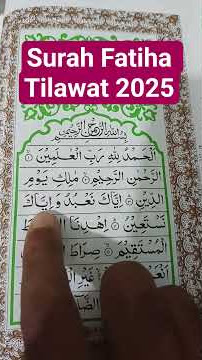 Surah Fatiha
Tilawat 2025
بِسْمِ اللهِ الرَّحْمٰنِ الرَّحِيْمِ
اَلْحَمْدُ لِلّٰهِ رَبِّ الْعٰلَمِيْنَ ۝
الرَّحْمٰنِ الرَّحِيْمِ ۝ مٰلِكِ يَوْمِ
الدِّيْنِ ۝ اِيَّاكَ نَعْبُدُ وَ اِيَّاكَ
نَسْتَعِيْنُ ۝ اِهْدِنَا
الْمُسْتَقِيْمَ ۝ صِرَاطَ
غَيْرِ